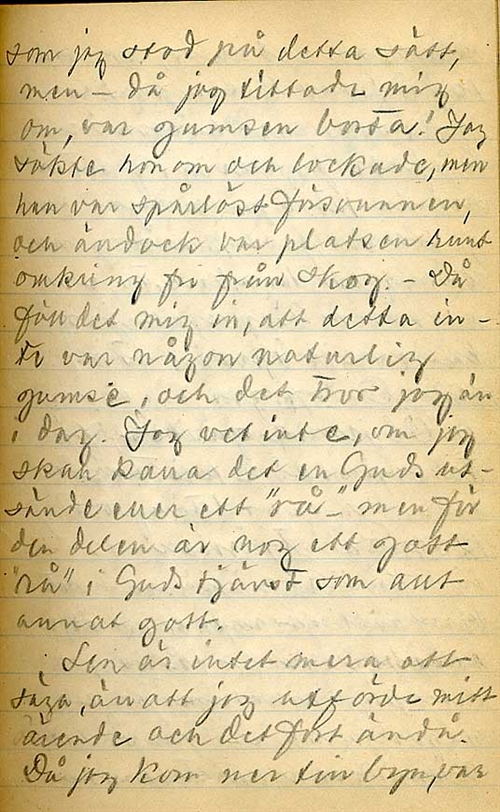 som jag stod på detta sätt,
men – då jag tittade mig
om, var gumsen borta! Jag
sökte honom och lockade, men
han var spårlöst försvunnen,
och ändock var platsen runt
omkring fri från skog. – Då
föll det mig in, att detta in-
te var någon naturlig
gumse, och det tror jag än
i dag. Jag vet inte, om jag
skall kalla det en Guds ut-
sände eller ett "rå" – men för
den delen är nog ett gott
"rå" i Guds tjänst som allt
annat gott.
Sen är intet mera att
säga, än att jag utförde mitt
ärende och det fort ändå.
Då jag kom ner till byn, var